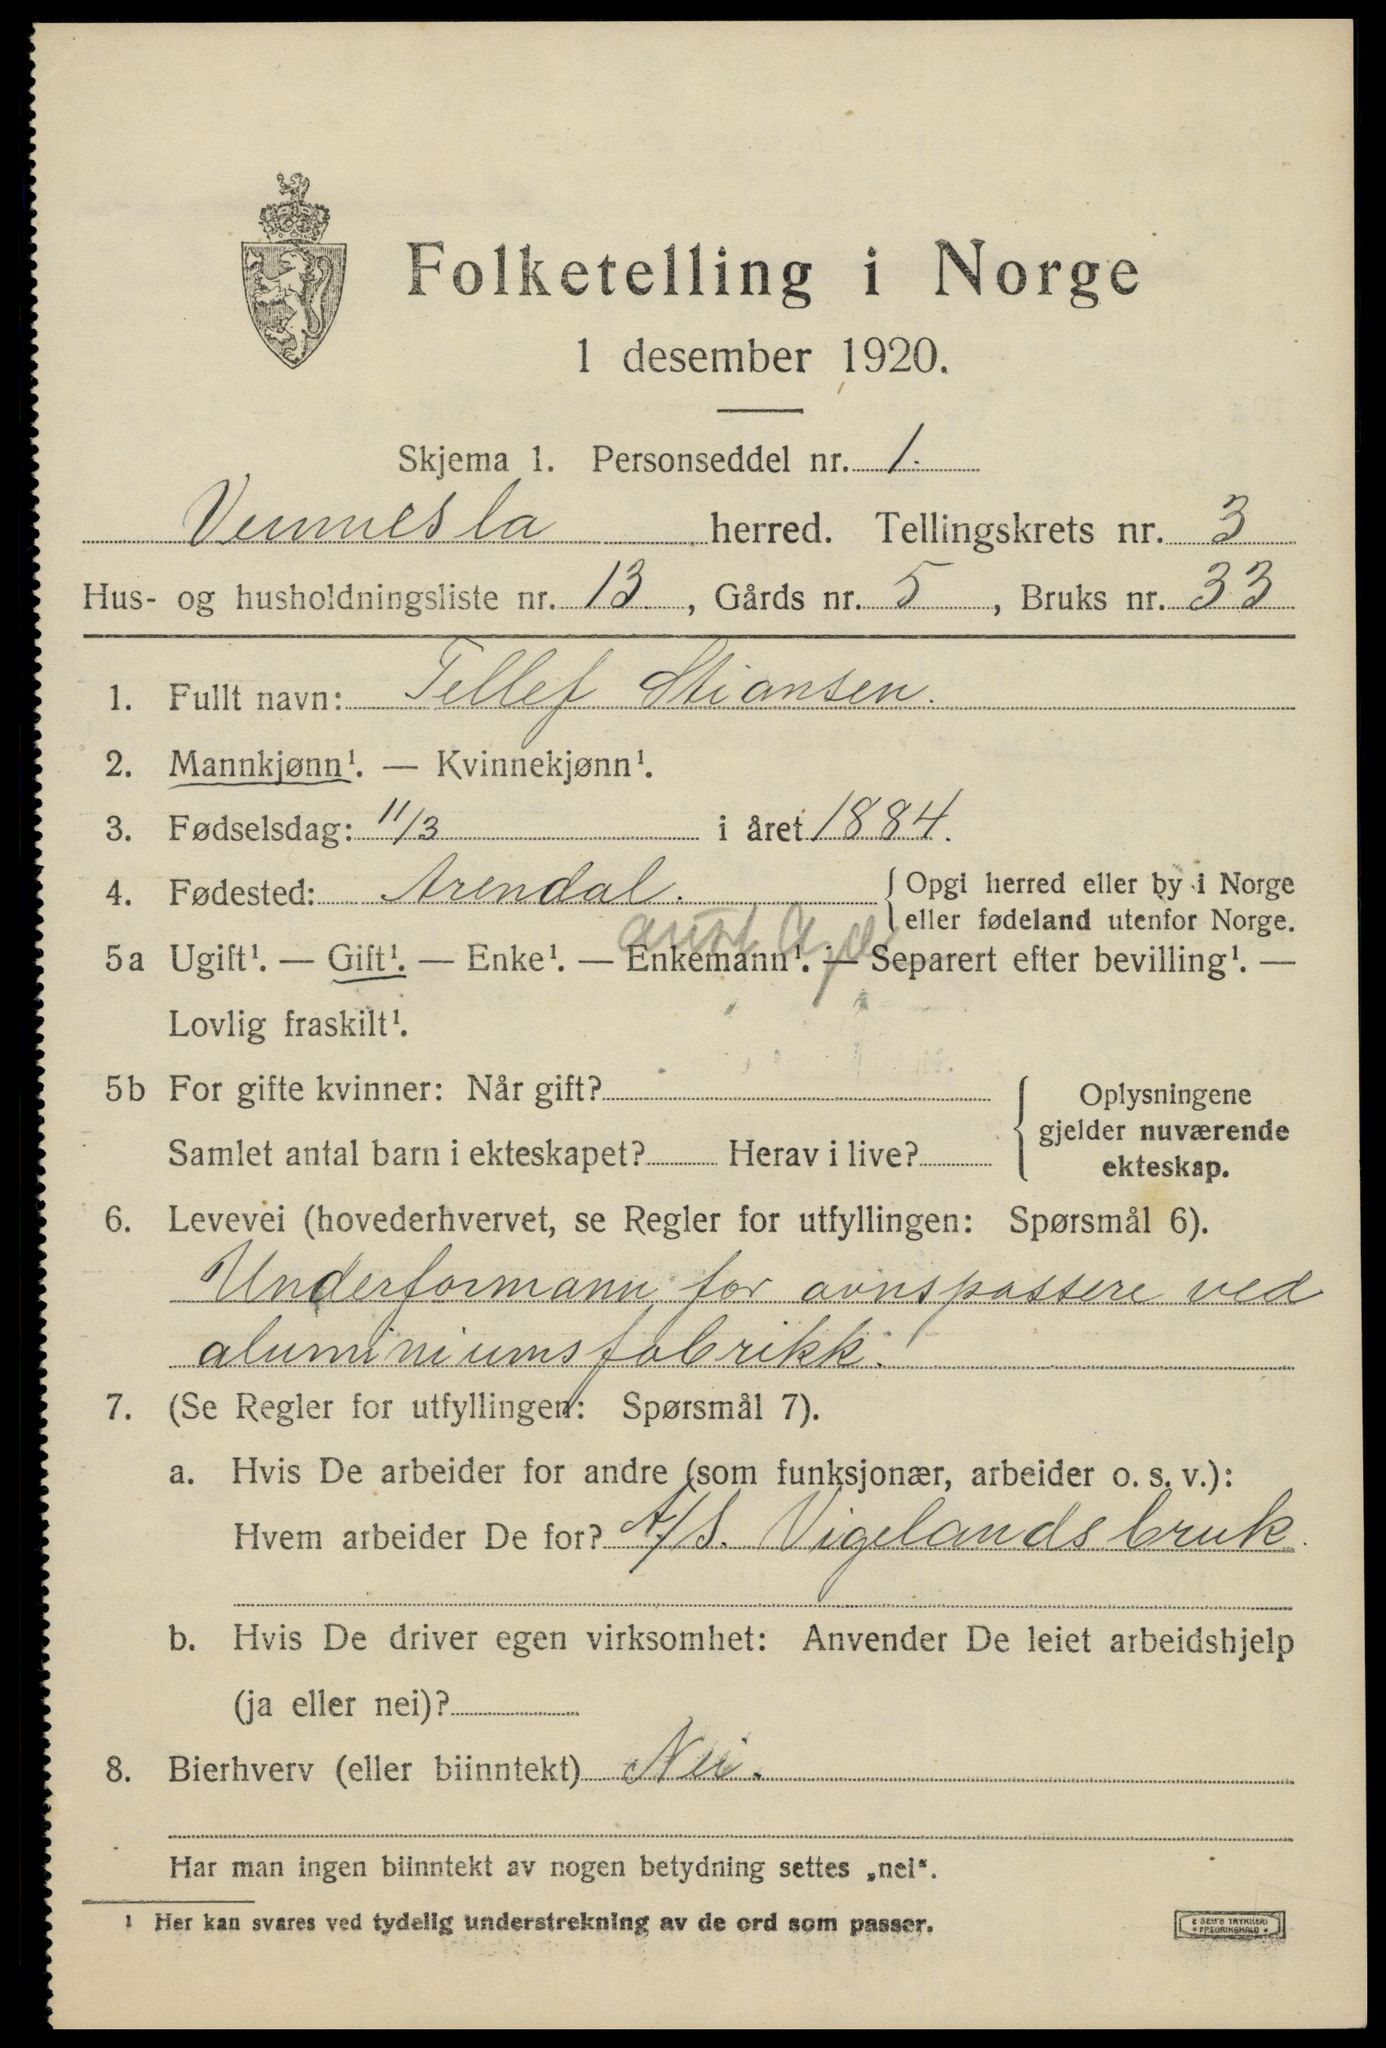 Folketelling i Norge
1 desember 1920.
Skjema 1. Personseddel nr. 1.
Vennesla herred. Tellingskrets nr. 3
Hus- og husholdningsliste nr. 13, Gårds nr. 5, Bruks nr. 33
1. Fullt navn: Tellef Stiansen.
2. Mannkjønn¹. — Kvinnekjønn¹.
3. Fødselsdag: 11/3 i året 1884.
4. Fødested: Arendal. { Opgi herred eller by i Norge
eller fødeland utenfor Norge.
aust Agd
5a Ugift¹. — Gift¹. — Enke¹. — Enkemann¹. — Separert efter bevilling¹. —
Lovlig fraskilt¹.
5b For gifte kvinner: Når gift?
Samlet antal barn i ekteskapet? Herav i live?
{ Oplysningene
gjelder nuværende
ekteskap.
6. Levevei (hovederhvervet, se Regler for utfyllingen: Spørsmål 6).
Underformann for ovnspassere ved
aluminiumsfabrikk.
7. (Se Regler for utfyllingen: Spørsmål 7).
a. Hvis De arbeider for andre (som funksjonær, arbeider o. s. v.):
Hvem arbeider De for? A/S. Vigelandsbruk.
b. Hvis De driver egen virksomhet: Anvender De leiet arbeidshjelp
(ja eller nei)?
8. Bierhverv (eller biinntekt) Nei.
Har man ingen biinntekt av nogen betydning settes „nei“.
¹ Her kan svares ved tydelig understrekning av de ord som passer.
E SEM'S TRYKKERI
* FREDRIKSHALD *